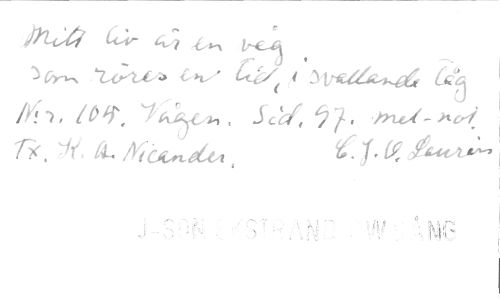 Mitt liv är en våg
som röres en tid, i svallande tåg
N:r. 105. Vågen. Sid. 97. mel-not.
Tx. K. A. Nicander. C. J. O. Laurin
J-SON STRAND W SÅNG